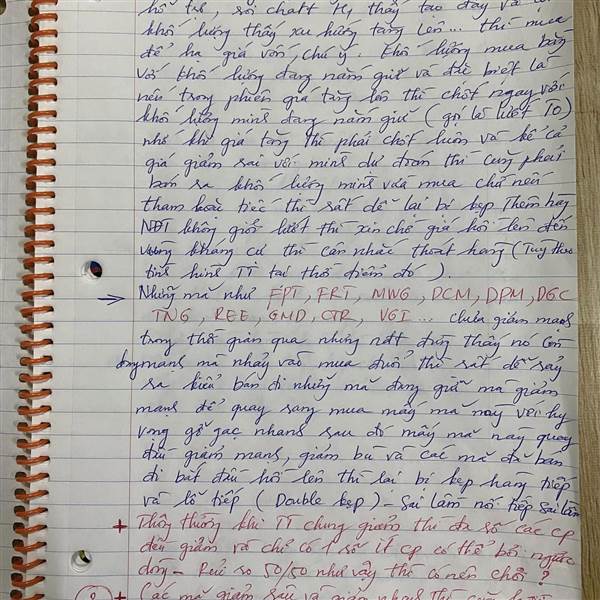 hỗ trợ, soi chart H, thấy tạo đáy và có
khối lượng thấy xu hướng tăng lên... thì mua
để hạ giá vốn, chú ý. Khối lượng mua bằng
với khối lượng đang nắm giữ và đặc biệt là
nếu trong phiên giá tăng lên thì chốt ngay với
khối lượng mình đang nắm giữ (gọi là lướt T0)
nhớ khi giá tăng thì phải chốt luôn và kể cả
giá giảm sai với mình dự đoán thì cũng phải
bán ra khối lượng mình vừa mua chứ nếu
tham hoặc tiếc thì rất dễ lại bị kẹp thêm hàng
NĐT không giỏi lướt thì xin chờ giá hồi lên đến
vùng kháng cự thì cân nhắc thoát hàng (Tùy theo
tình hình TT tại thời điểm đó).
→ Những mã như FPT, FRT, MWG, DCM, DPM, DGC
TNG, REE, GMD, CTR, VGI ... chưa giảm mạnh
trong thời gian qua nhưng nđt đừng thấy nó còn
đang mạnh mà nhảy vào mua đuổi thì rất dễ xảy
ra kiểu bán đi những mã đang giữ mà giảm
mạnh để quay sang mua mấy mã này với hy
vọng gỡ gạc nhanh sau đó mấy mã này quay
đầu giảm mạnh, giảm bù và các mã đã bán
đi bắt đầu hồi lên thì lại bị kẹp hàng tiếp
và lỗ tiếp (Double kẹp) - Sai lầm nối tiếp sai lầm
+ Thông thường khi TT chung giảm thì đa số các cp
đều giảm và chỉ có 1 số ít cp có thể bơi ngược
dòng - Rủi ro 50/50 như vậy thì có nên chơi?
+ Các mã giảm sâu và giảm nhanh thì